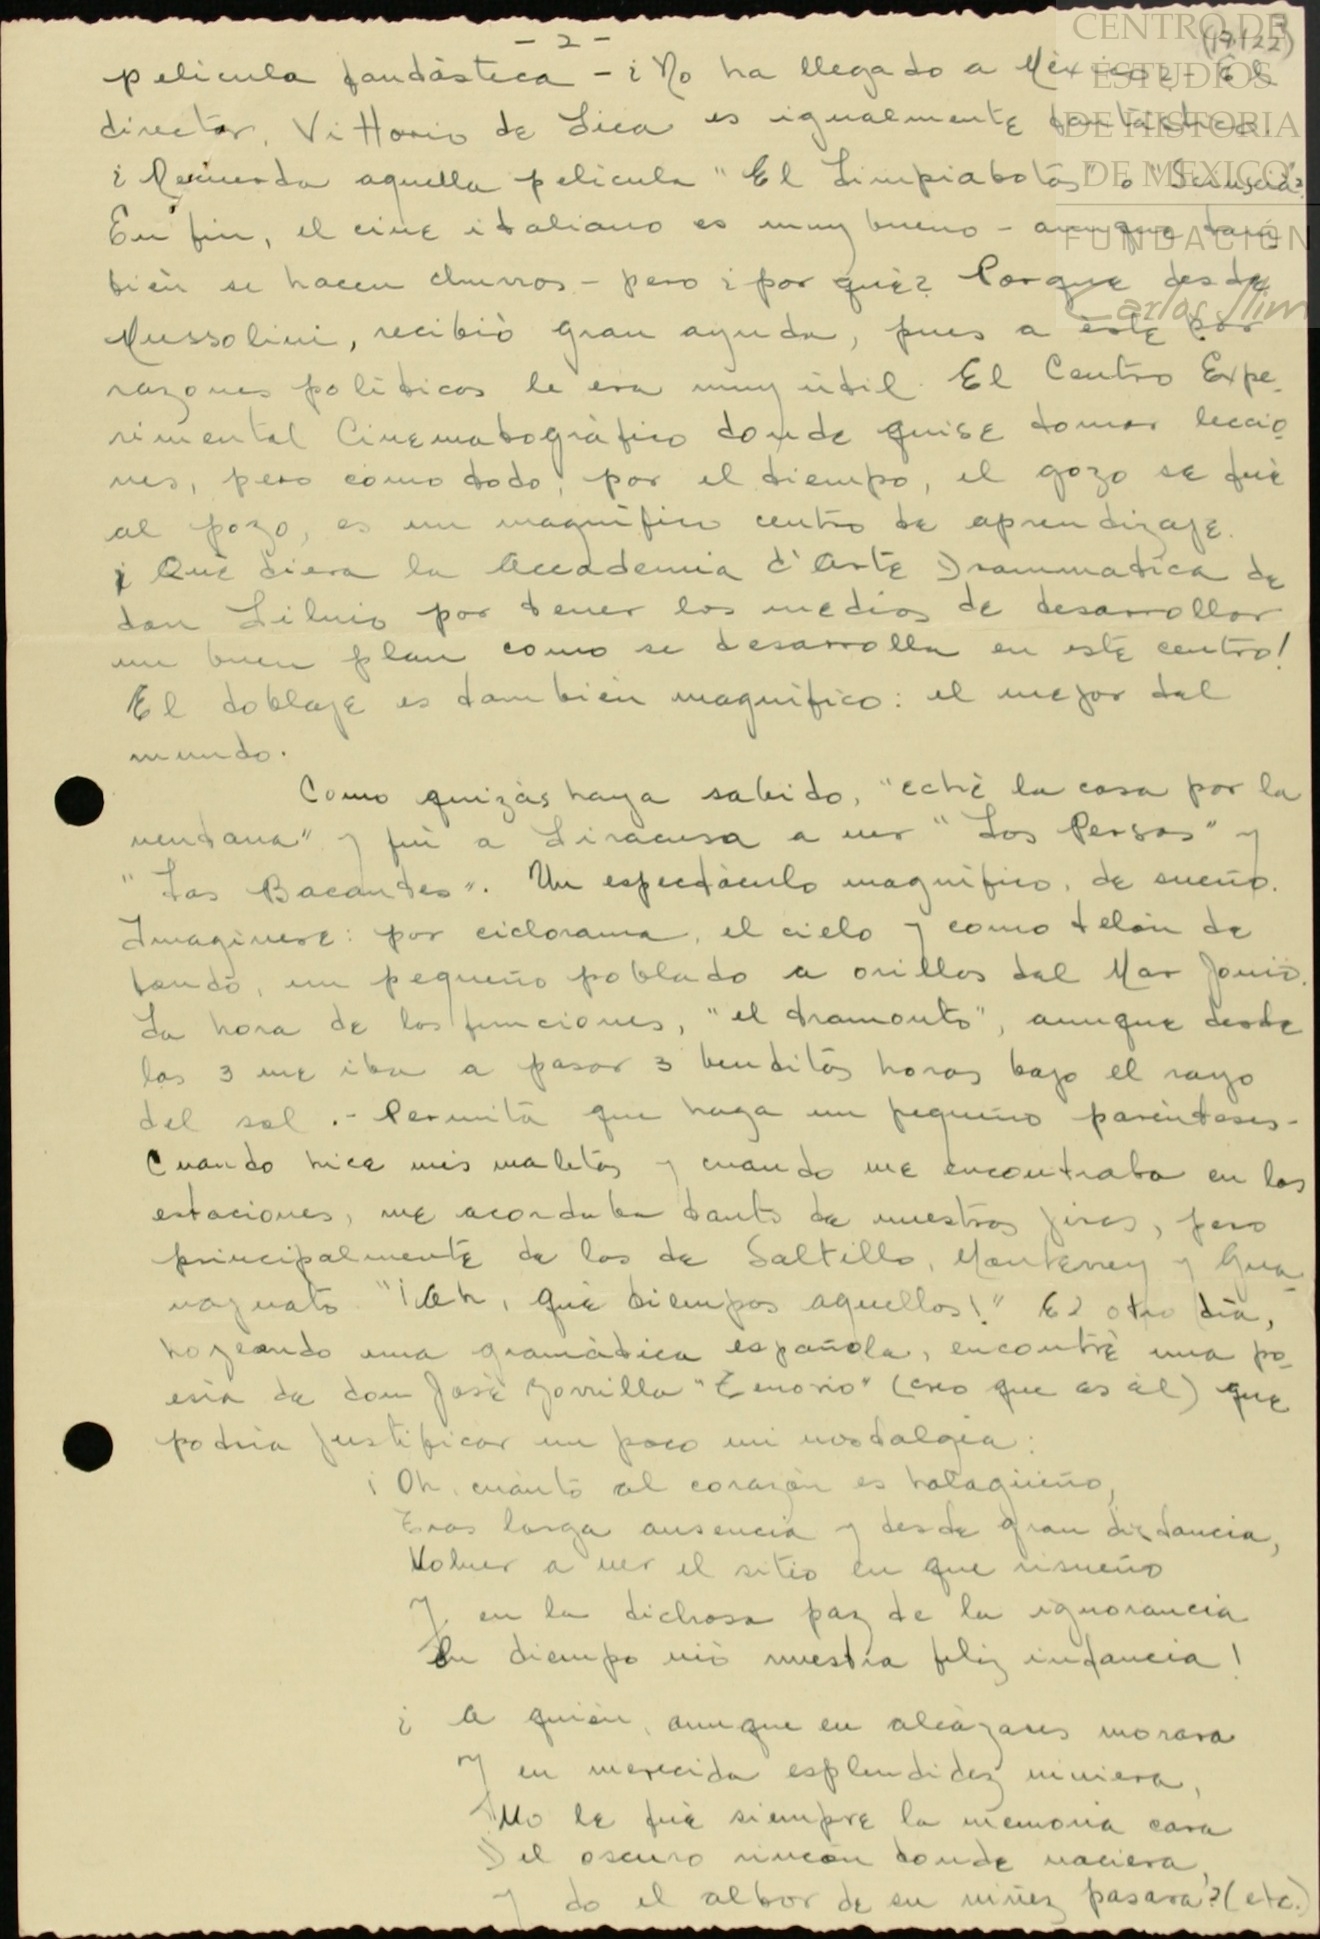 - 2 -
(19/22)
CENTRO DE
ESTUDIOS
DE HISTORIA
DE MEXICO
FUNDACIÓN
Carlos Slim
película fantástica - ¿No ha llegado a México? - El
director, Vittorio de Sica es igualmente fantástico.
¿Recuerda aquella película "El Limpiabotas" o "Sciuscià?
En fin, el cine italiano es muy bueno - aunque tam
bièn se hacen churros - pero ¿por què? Porque desde
Mussolini, recibiò gran ayuda, pues a èste por
razones políticas le era muy ùtil. El Centro Expe-
rimental Cinematogràfico donde quise tomar leccio-
nes, pero como todo, por el tiempo, el gozo se fuè
al pozo, es un magnífico centro de aprendizaje.
¡Què diera la Accademia d'Arte Drammatica de
don Silvio por tener los medios de desarrollar
un buen plan como se desarrolla en este centro!
El doblaje es tambièn magnífico: el mejor del
mundo.
Como quizás haya sabido, "echè la casa por la
ventana" y fuí a Siracusa a ver "Los Persas" y
"Las Bacantes". Un espectàculo magnífico, de sueño.
Imagínese: por ciclorama, el cielo y como telòn de
fondo, un pequeño poblado a orillas del Mar Jonio.
La hora de las funciones, "el tramonto", aunque desde
las 3 me iba a pasar 3 benditas horas bajo el rayo
del sol .- Permita que haga un pequeño parèntesis -
Cuando hice mis maletas y cuando me encontraba en las
estaciones, me acordaba tanto de nuestras jiras, pero
principalmente de las de Saltillo, Monterrey y Gua-
najuato. "¡Ah, què tiempos aquellos!" El otro dìa,
hojeando una gramàtica española, encontrè una po-
esía de don Josè Zorrilla "Tenorio" (creo que es èl) que
podría justificar un poco mi nostalgia:
¡Oh, cuànto al corazòn es halagüeño,
Tras larga ausencia y desde gran distancia,
Volver a ver el sitio en que risueño
Y en la dichosa paz de la ignorancia
Un tiempo viò nuestra feliz infancia!
¿A quièn, aunque en alcàzares morara
Y en merecida esplendidez viviera,
No le fuè siempre la memoria cara
Del oscuro rincòn donde naciera,
Y do el albor de su niñez pasara? (etc.)